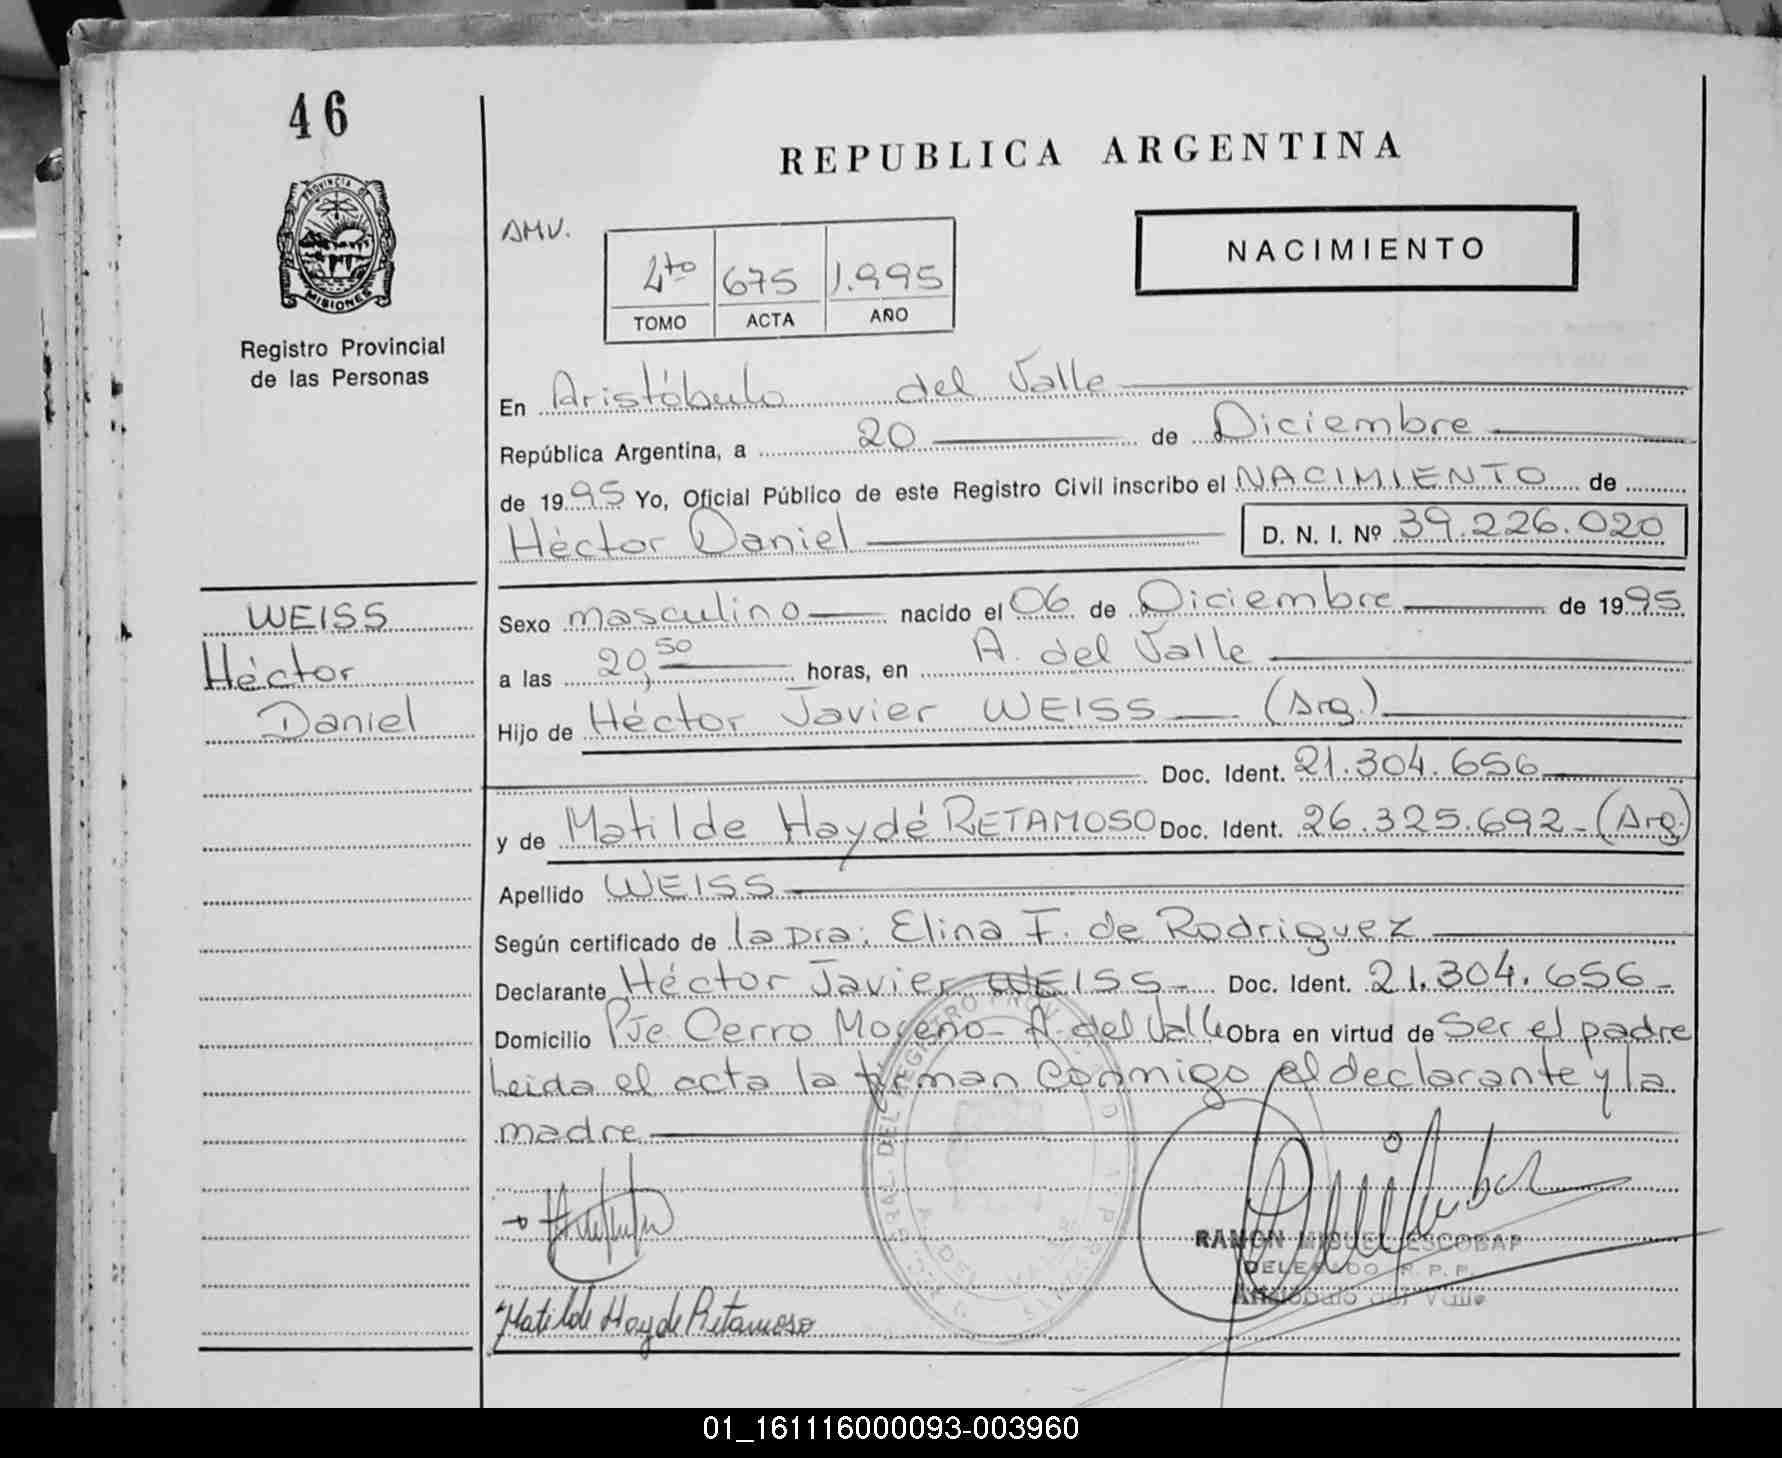 46
REPUBLICA ARGENTINA
PROVINCIA DE
MISIONES
AMV.
NACIMIENTO
4to 675 1.995
TOMO ACTA AÑO
Registro Provincial
de las Personas
En Aristóbulo del Valle
República Argentina, a 20 de Diciembre
de 1995 Yo, Oficial Público de este Registro Civil inscribo el NACIMIENTO de
Héctor Daniel D. N. I. Nº 39.226.020
WEISS
Héctor
Daniel
Sexo masculino nacido el 06 de Diciembre de 1995
a las 20,50 horas, en A. del Valle
Hijo de Héctor Javier WEISS (Arg.)
Doc. Ident. 21.304.656
y de Matilde Haydé RETAMOSO Doc. Ident. 26.325.692 - (Arg.)
Apellido WEISS
Según certificado de la Dra: Elina F. de Rodriguez
Declarante Héctor Javier WEISS - Doc. Ident. 21.304.656 -
Domicilio Pje Cerro Moreno - A. del Valle Obra en virtud de Ser el padre
Leida el acta la firman Conmigo el declarante y la
madre
RAMON MIGUEL ESCOBAR
DELEGADO R. P. P.
Aristóbulo del Valle
Matilde Hayde Retamoso
01_161116000093-003960